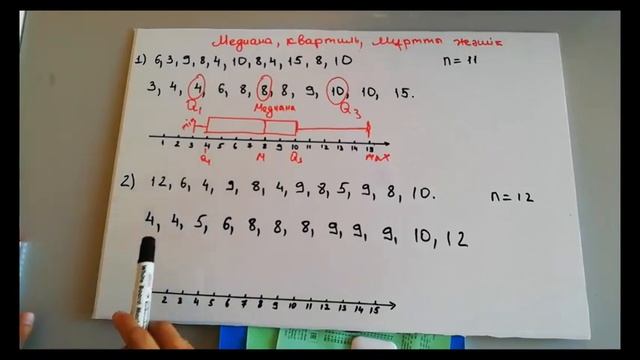 Медиана, квартиль, мұртты жәшік
1) 6, 3, 9, 8, 4, 10, 8, 4, 15, 8, 10 n = 11
3, 4, 4, 6, 8, 8, 8, 9, 10, 10, 15.
Q1 Медиана Q3
min
1 2 3 4 5 6 7 8 9 10 11 12 13 14 15
Q1 M Q3 max
2) 12, 6, 4, 9, 8, 4, 9, 8, 5, 9, 8, 10. n = 12
4, 4, 5, 6, 8, 8, 8, 9, 9, 9, 10, 12
2 3 4 5 6 7 8 9 10 11 12 13 14 15